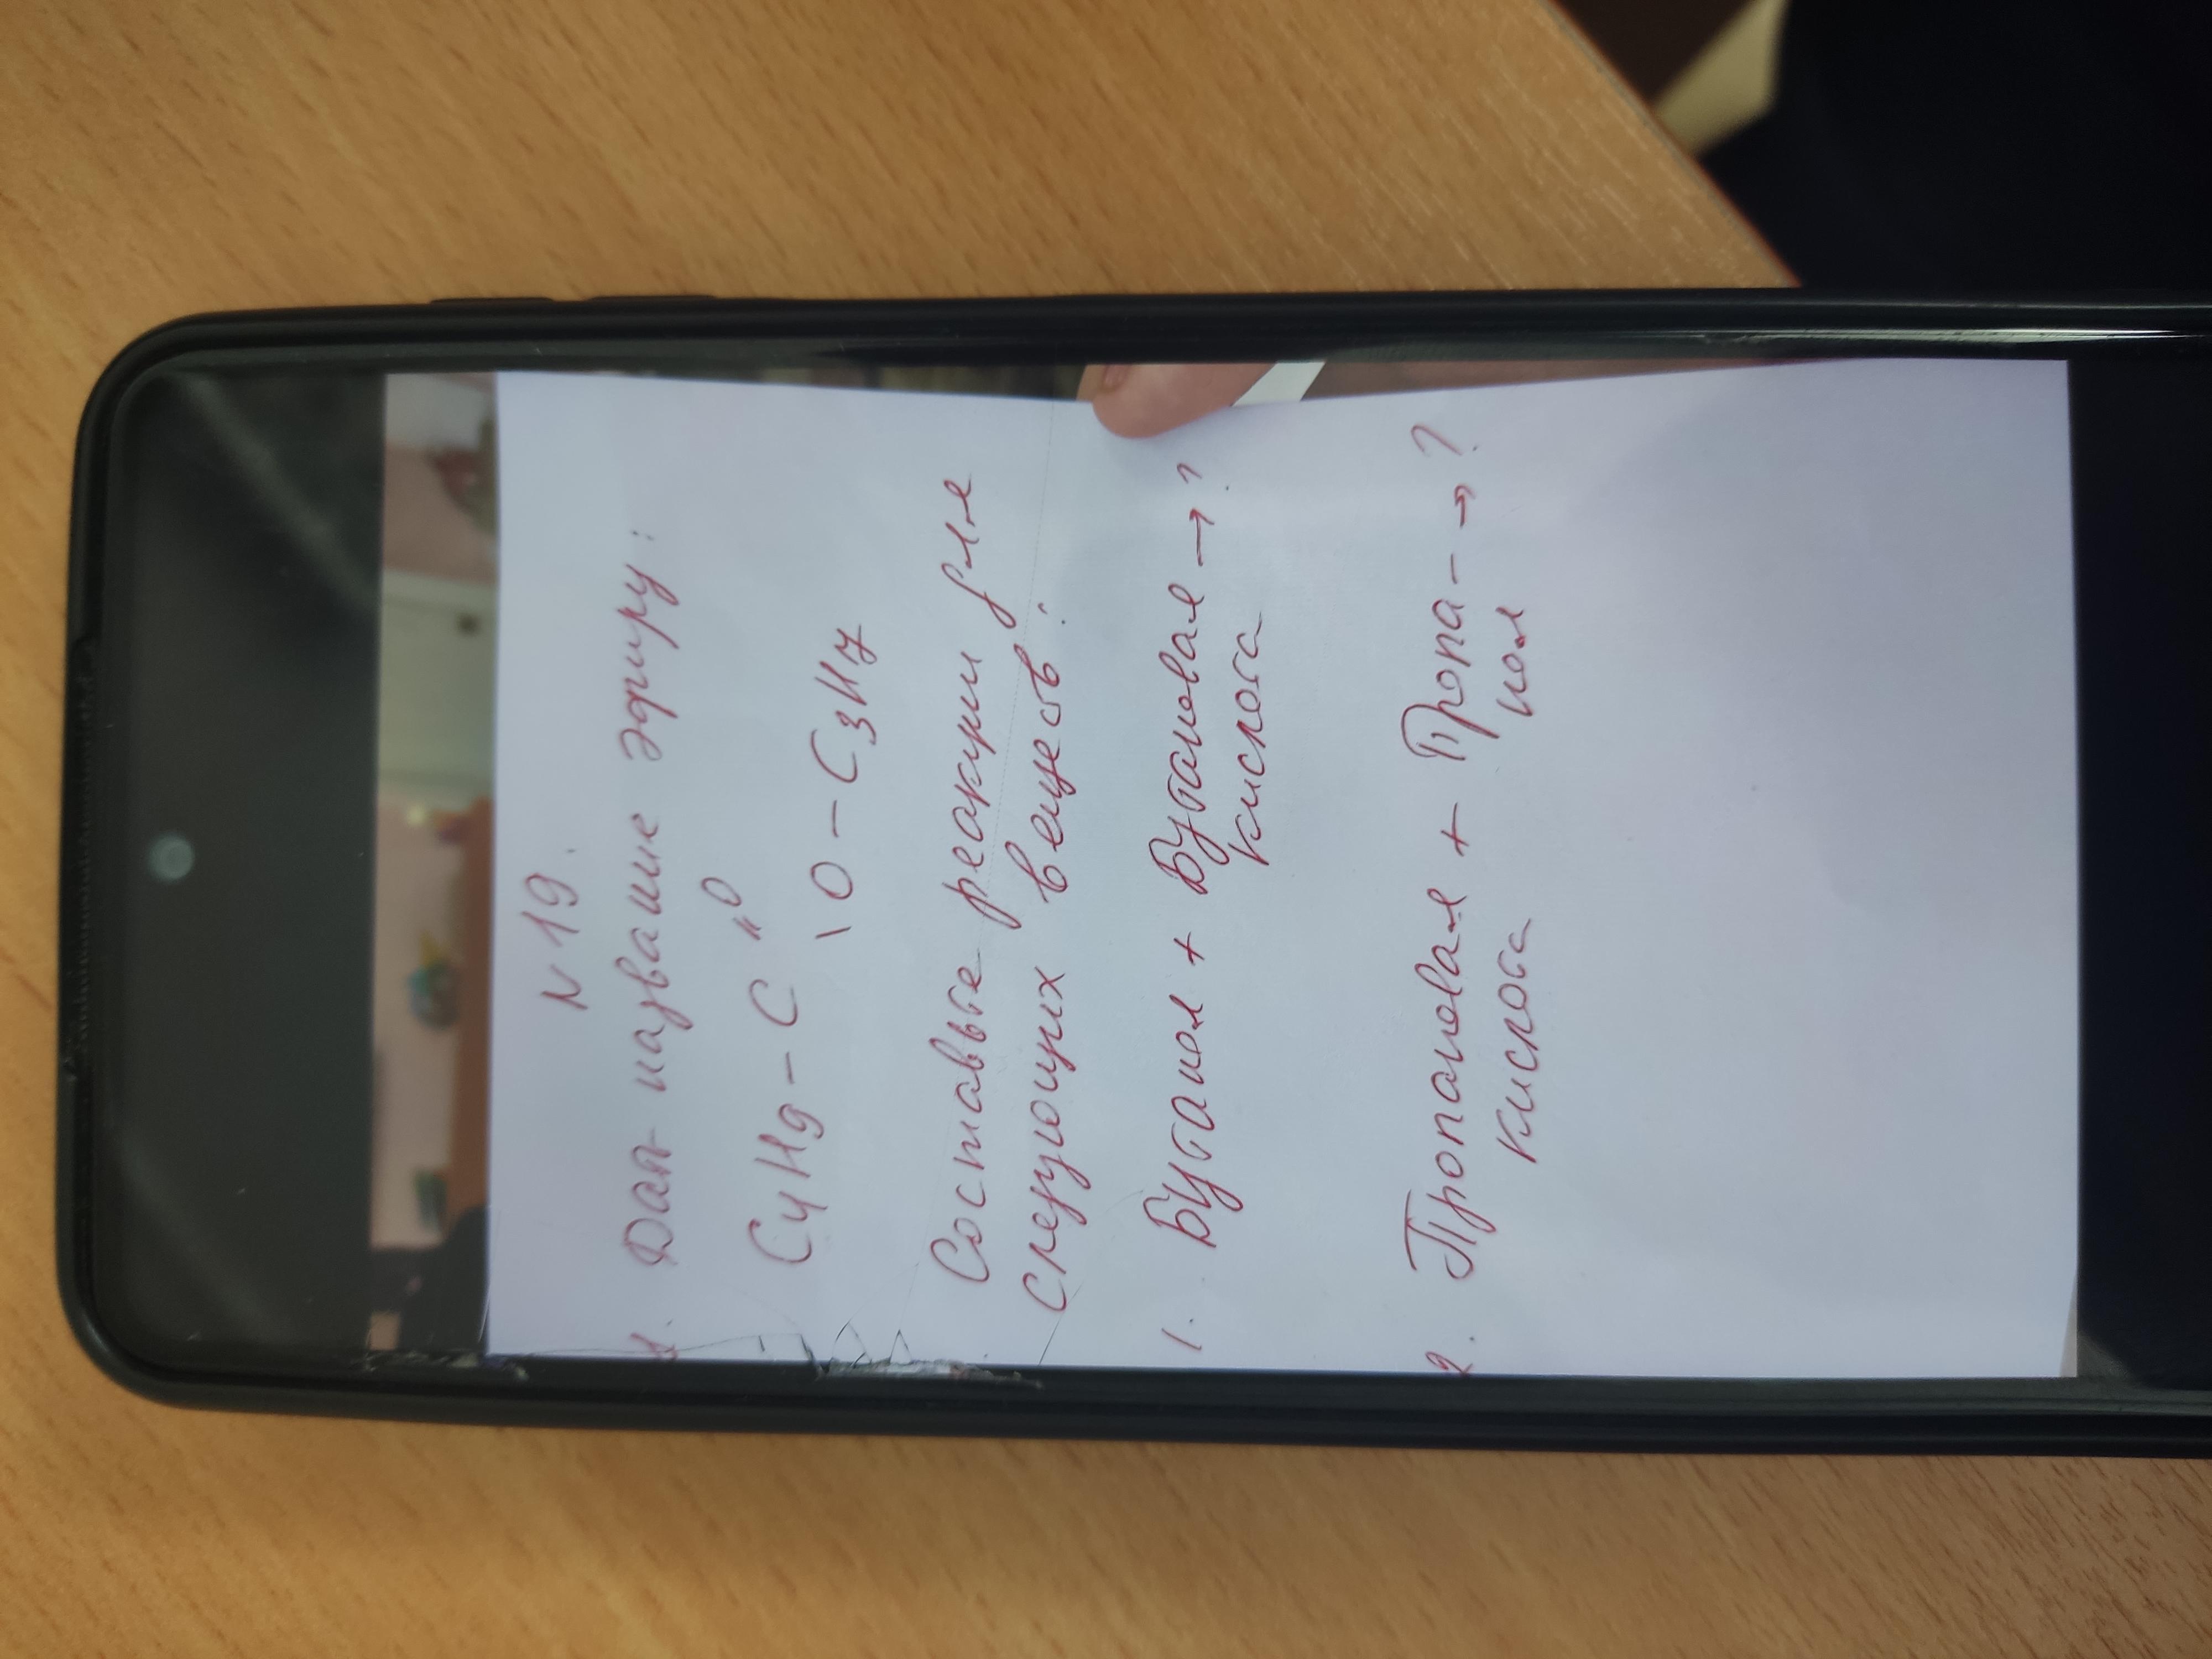 N 19.
1. Дать название эфиру:
C4H9 - C " O
\ O - C3H7
Составьте реакции для
следующих веществ:
1. Бутанол + Бутановая → ?
кислота
2. Пропановая + Пропа- → ?
кислота нол